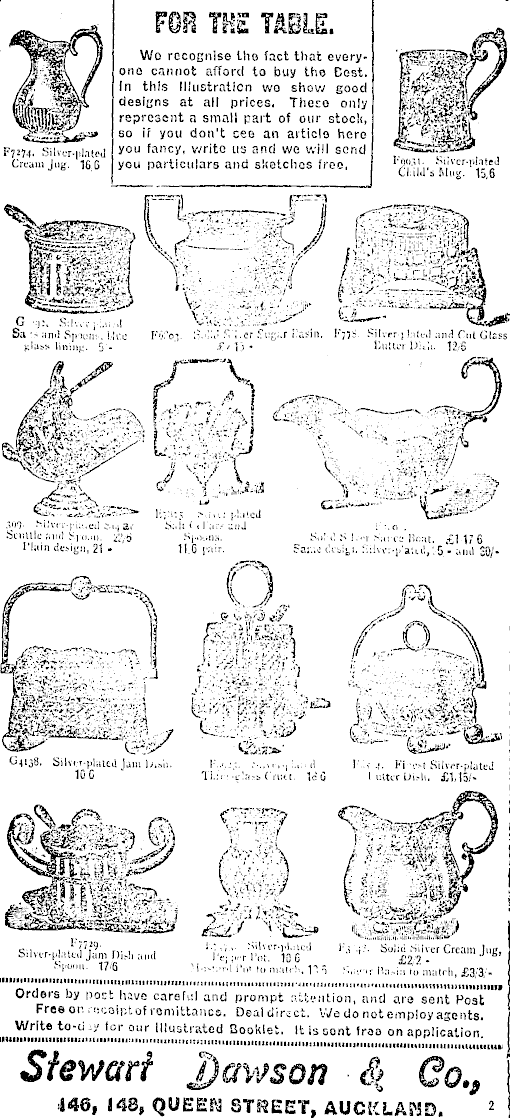 FOR THE TABLE.
We recognise the fact that every-
one cannot afford to buy the Best.
In this Illustration we show good
designs at all prices. These only
represent a small part of our stock,
so if you don't see an article here
you fancy, write us and we will send
you particulars and sketches free.
F7274. Silver-plated
Cream Jug. 16/6
F9031. Silver-plated
Child's Mug. 15/6
Silver-plated
and Spoon, blue
glass lining. 5/-
Solid Silver Sugar Basin.
F778. Silver-plated and Cut Glass
Butter Dish. 12/6
Silver-plated Sugar
Scuttle and Spoon. 22/6
Plain design, 21/-
Silver-plated
Salt Cellars and
Spoons.
11/6 pair.
Solid Silver Sauce Boat. £1/17/6
Same design, Silver-plated, and 30/-
G4138. Silver-plated Jam Dish.
10/6
Silver-plated
Three-glass Cruet. 18/6
Finest Silver-plated
Butter Dish. £1/15/-
F7729.
Silver-plated Jam Dish and
Spoon. 17/6
Silver-plated
Pepper Pot. 10/6
Mustard Pot to match,
Solid Silver Cream Jug,
£2/2/-
Sugar Basin to match, £3/3/-
Orders by post have careful and prompt attention, and are sent Post
Free on receipt of remittance. Deal direct. We do not employ agents.
Write to-day for our Illustrated Booklet. It is sent free on application.
Stewart Dawson & Co.,
146, 148, QUEEN STREET, AUCKLAND.
2